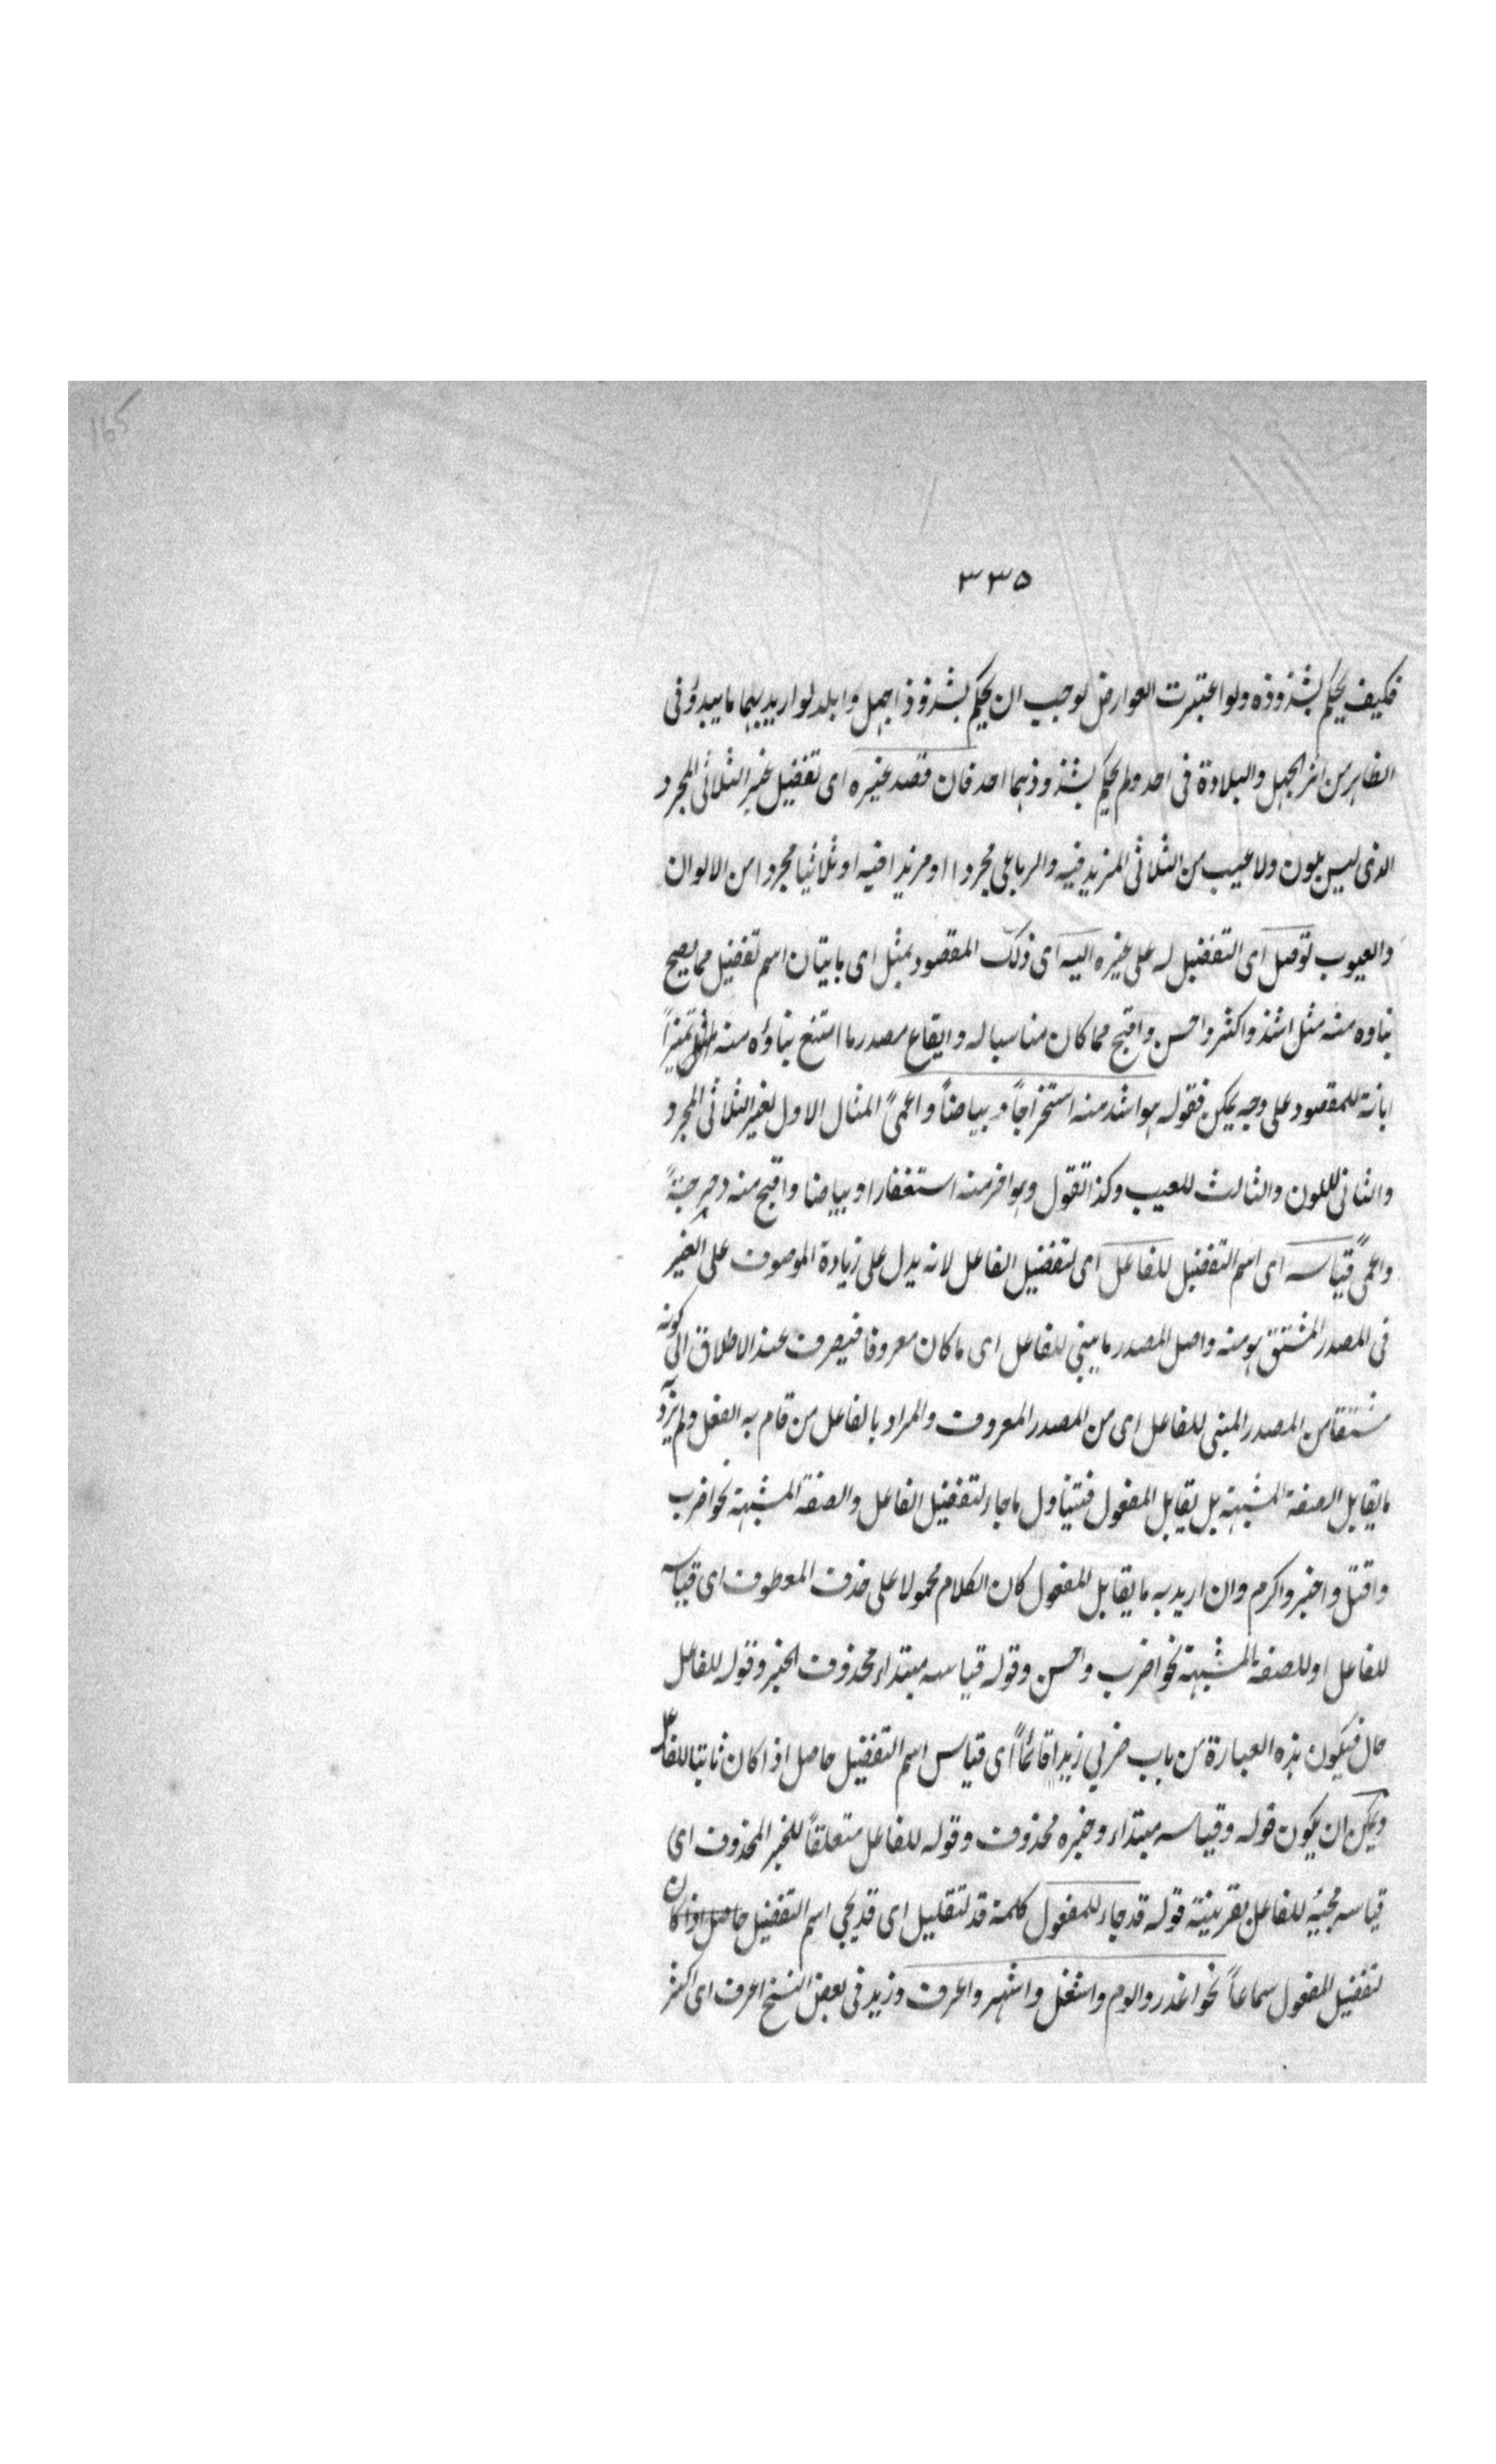 165
٣٣٥
فكيف يحكم بشذوذه ولو اعتبرت العوارض لوجب ان يحكم بشذوذ اجهل وابلد لو اريد بهما ما يبدؤ فى
الظاهر من اثر الجهل والبلادة فى احد ولم يحكم بشذوذهما احد فان قصد غيره اى تفضيل غير الثلاثى المجرد
الذى ليس بلون ولا عيب من الثلاثى المزيد فيه والرباعى مجردا او مزيدا فيه او ثلاثيا مجردا من الالوان
والعيوب توصل اى التفضيل له على غيره اليه اى ذلك المقصود بمثل اى باتيان اسم تفضيل مما يصح
بناوه منه مثل اشذ واكثر واحسن واقبح مما كان مناسبا له وايقاع مصدر ما امتنع بناؤه منه تميزاً
ابانة للمقصود على وجه يمكن فقوله هو اشد منه استخراجاً وبياضاً واعمىً المثال الاول لغير الثلاثى المجرد
والثانى للون والثالث للعيب وكذا تقول وهو افر منه استغفارا وبياضا واقبح منه دحرجةً
واعمىً قياسه اى اسم التفضيل للفاعل اى لتفضيل الفاعل لانه يدل على زيادة الموصوف على الغير
فى المصدر المشتق هو منه واصل المصدر ما يبنى للفاعل اى ما كان معروفا فيصرف عند الاطلاق الى كونه
مشتقا من المصدر المبنى للفاعل اى من المصدر المعروف والمراد بالفاعل من قام به الفعل ولم يرد به
ما يقابل الصفة المشبهة بل يقابل المفعول فيتناول ما جاء لتفضيل الفاعل والصفة المشبهة نحو اضرب
واقتل واخبر واكرم وان اريد به ما يقابل المفعول كان الكلام محمولا على حذف المعطوف اى قياسه
للفاعل او للصفة المشبهة نحو اضرب واحسن وقوله قياسه مبتداء محذوف الخبر وقوله للفاعل
حال فيكون هذه العبارة من باب ضربي زيدا قائماً اى قياس اسم التفضيل حاصل اذا كان ثابتا للفاعل
ويمكن ان يكون قوله وقياسه مبتداء وخبره محذوف وقوله للفاعل متعلقاً للخبر المحذوف اى
قياسه مجيئه للفاعل بقرينة قوله قد جاء للمفعول كلمة قد لتقليل اى قد يجى اسم التفضيل حاصل اذا كان
لتفضيل المفعول سماعاً نحو اعذر والوم واشغل واشهر واعرف وزيد فى بعض النسخ اعرف اى اكثر